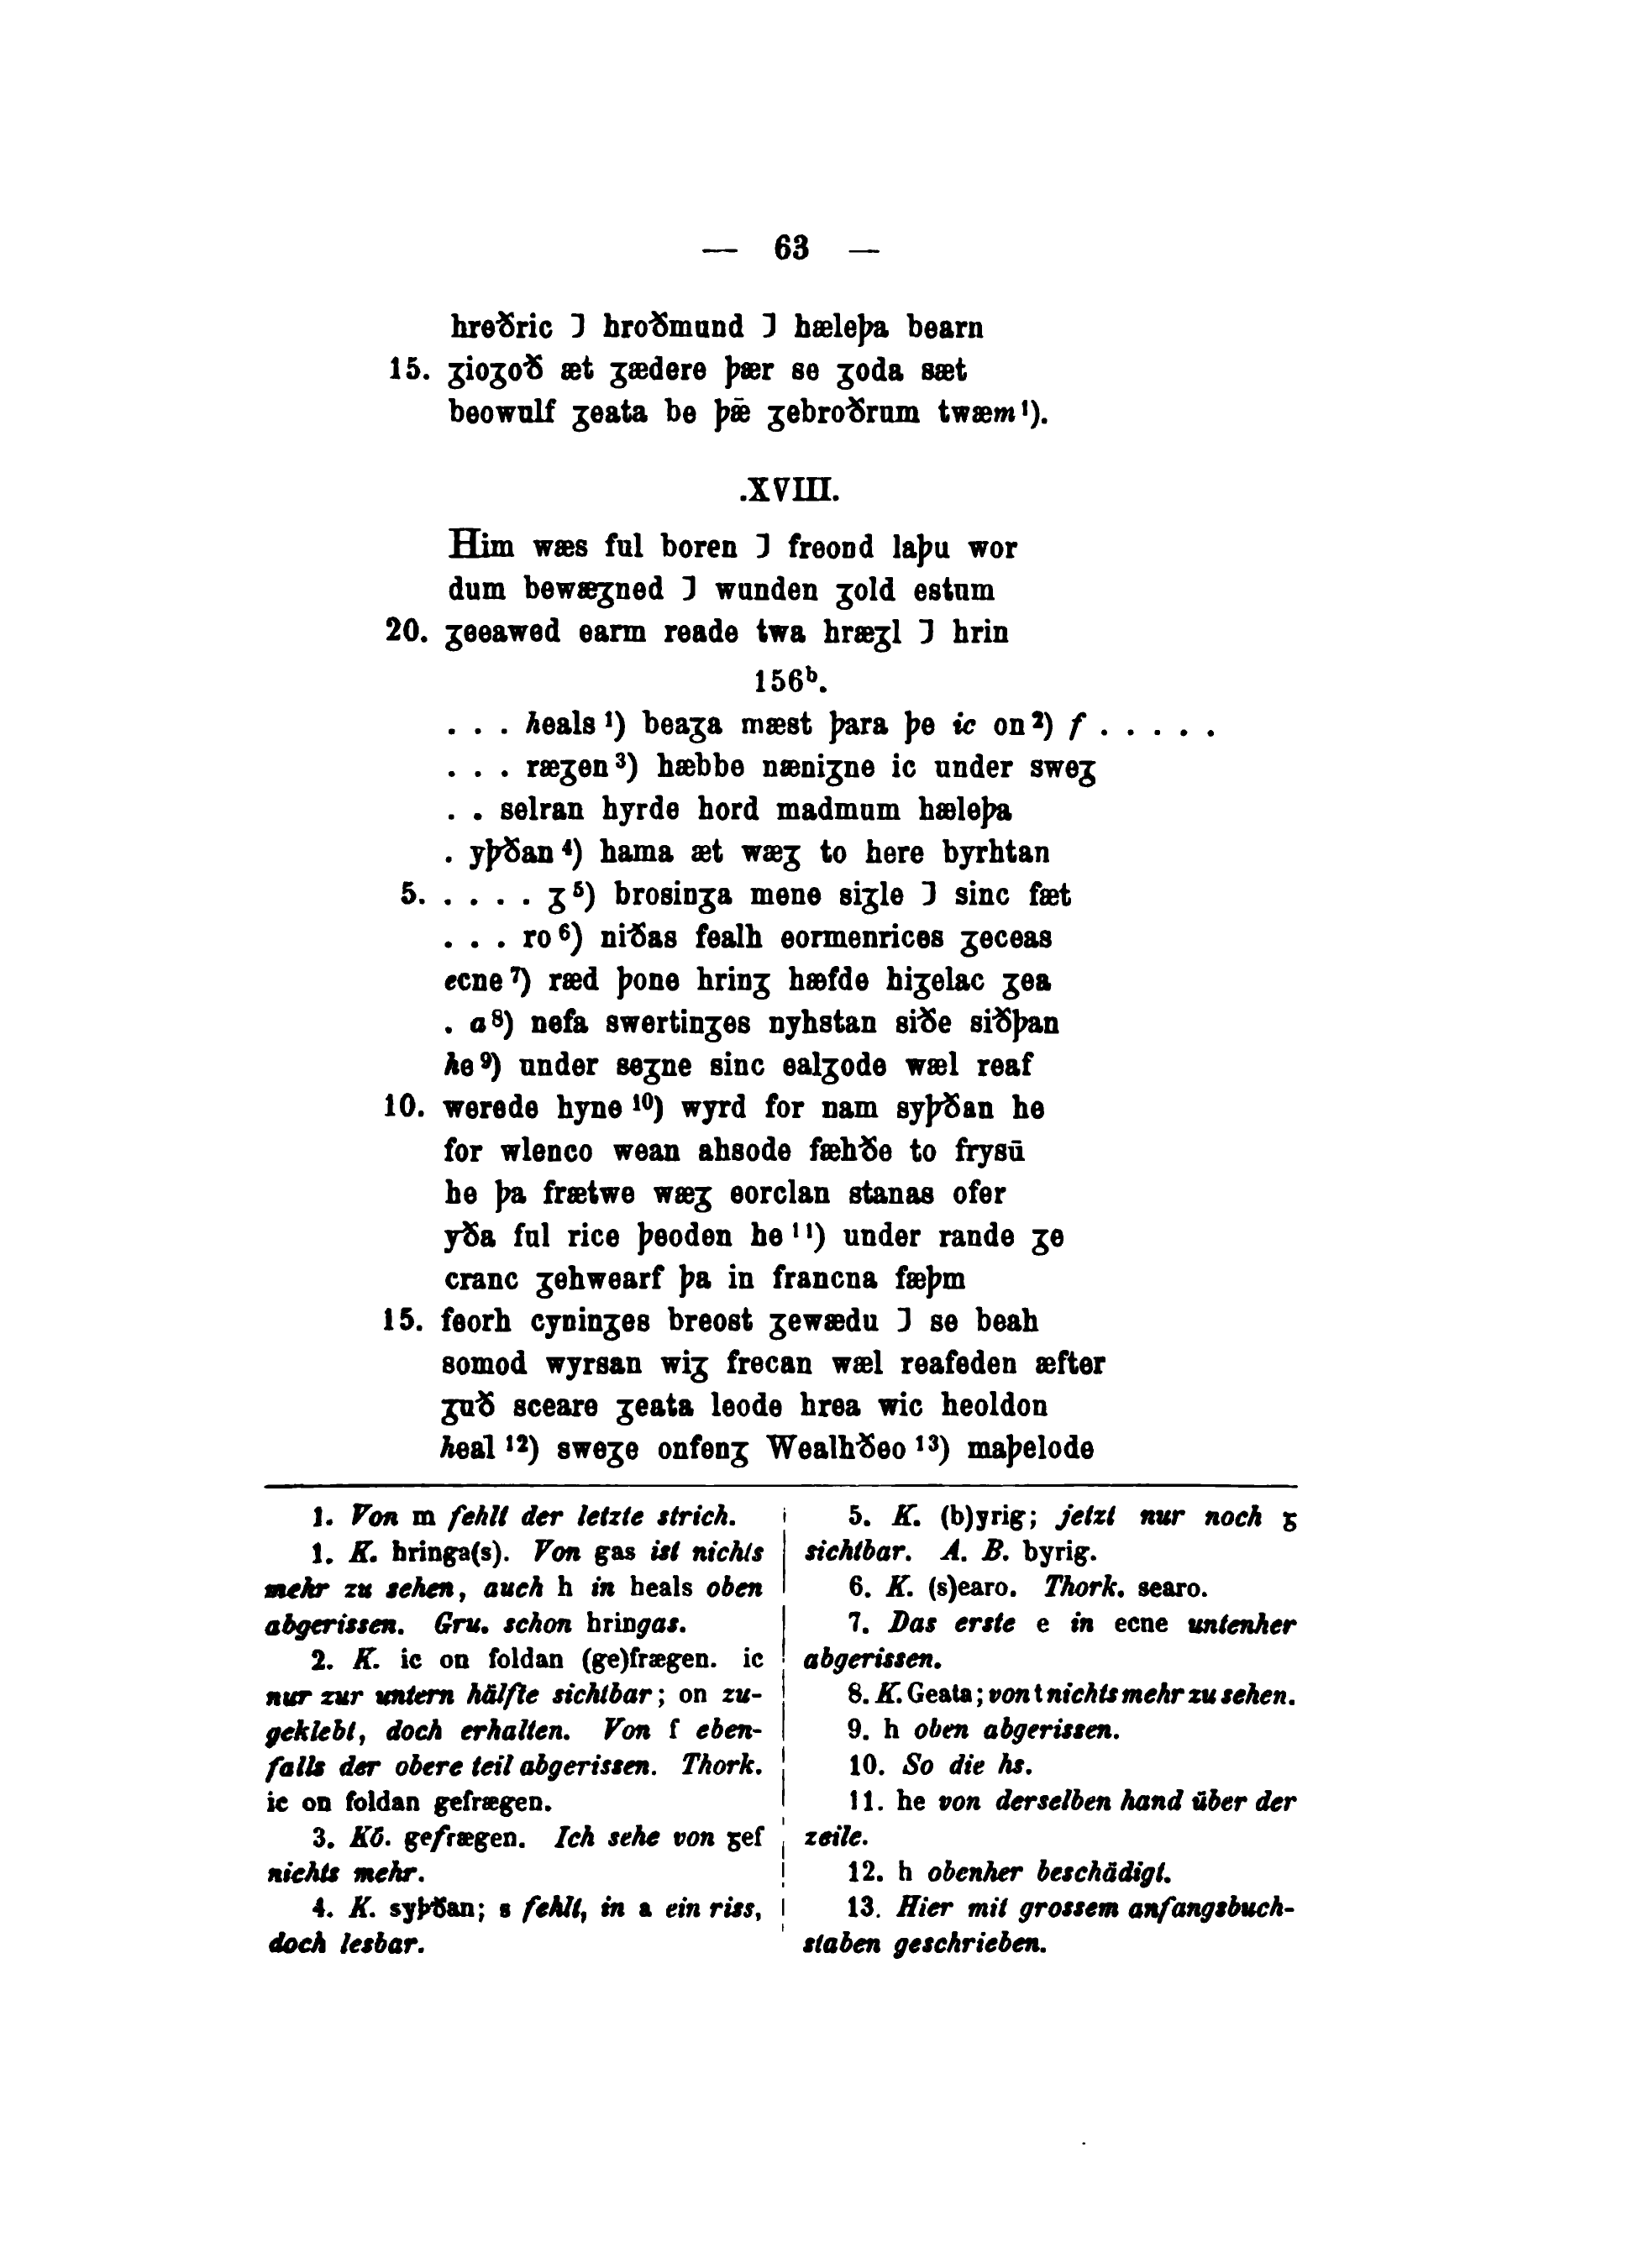 — 63 —
hreðric ⁊ hroðmund ⁊ hæleþa bearn
15. ȝioȝoð æt ȝædere þær se ȝoda sæt
beowulf ȝeata be þǣ ȝebroðrum twæm ¹).
.XVIII.
Him wæs ful boren ⁊ freond laþu wor
dum bewæȝned ⁊ wunden ȝold estum
20. ȝeeawed earm reade twa hræȝl ⁊ hrin
156ᵇ.
. . . heals ¹) beaȝa mæst þara þe ic on ²) f . . . . .
. . . ræȝen ³) hæbbe næniȝne ic under sweȝ
. . selran hyrde hord madmum hæleþa
. yþðan ⁴) hama æt wæȝ to here byrhtan
5. . . . . . ȝ ⁵) brosinȝa mene siȝle ⁊ sinc fæt
. . . ro ⁶) niðas fealh eormenrices ȝeceas
ecne ⁷) ræd þone hrinȝ hæfde hiȝelac ȝea
. a ⁸) nefa swertinȝes nyhstan siðe siðþan
he ⁹) under seȝne sinc ealȝode wæl reaf
10. werede hyne ¹⁰) wyrd for nam syþðan he
for wlenco wean ahsode fæhðe to frysū
he þa frætwe wæȝ eorclan stanas ofer
yða ful rice þeoden he ¹¹) under rande ȝe
cranc ȝehwearf þa in francna fæþm
15. feorh cyninȝes breost ȝewædu ⁊ se beah
somod wyrsan wiȝ frecan wæl reafeden æfter
ȝuð sceare ȝeata leode hrea wic heoldon
heal ¹²) sweȝe onfenȝ Wealhðeo ¹³) maþelode
1. Von m fehlt der letzte strich.
1. K. hringa(s). Von gas ist nichts
mehr zu sehen, auch h in heals oben
abgerissen. Gru. schon hringas.
2. K. ic on foldan (ge)frægen. ic
nur zur untern hälfte sichtbar; on zu-
geklebt, doch erhalten. Von f eben-
falls der obere teil abgerissen. Thork.
ic on foldan gefrægen.
3. Kö. gefrægen. Ich sehe von ȝef
nichts mehr.
4. K. syþðan; s fehlt, in a ein riss,
doch lesbar.
5. K. (b)yrig; jetzt nur noch ȝ
sichtbar. A. B. byrig.
6. K. (s)earo. Thork. searo.
7. Das erste e in ecne untenher
abgerissen.
8. K. Geata; von t nichts mehr zu sehen.
9. h oben abgerissen.
10. So die hs.
11. he von derselben hand über der
zeile.
12. h obenher beschädigt.
13. Hier mit grossem anfangsbuch-
staben geschrieben.